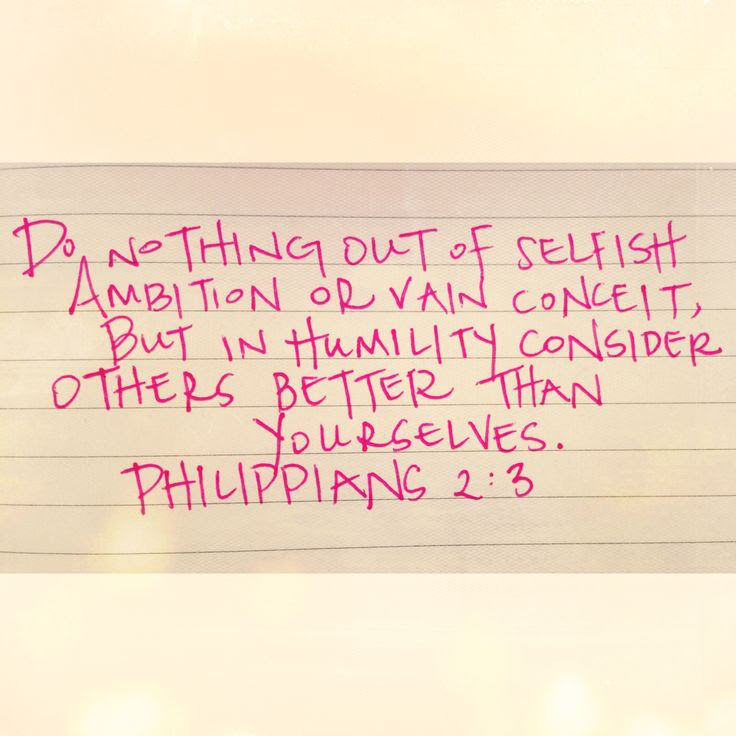 Do NOTHING OUT OF SELFISH
AMBITION OR VAIN CONCEIT,
BUT IN HUMILITY CONSIDER
OTHERS BETTER THAN
YOURSELVES.
PHILIPPIANS 2:3